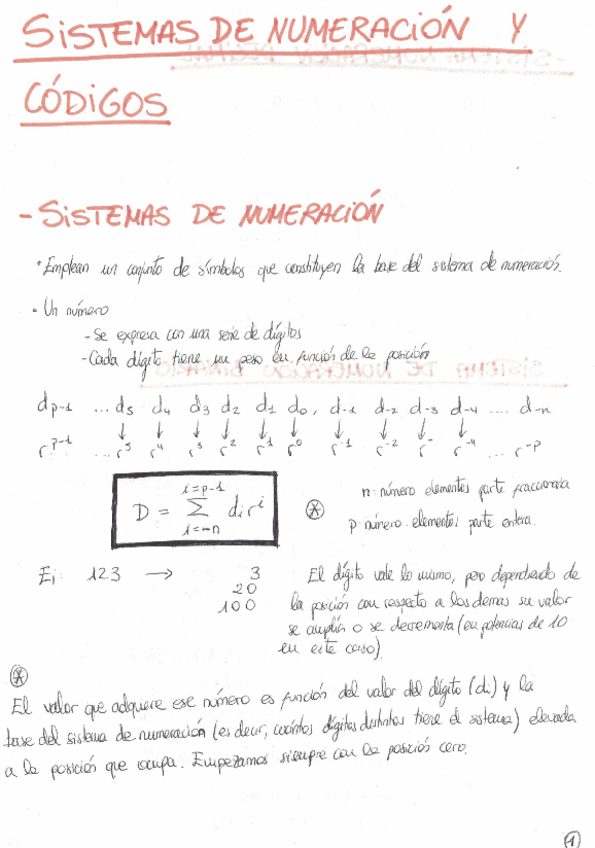 SISTEMAS DE NUMERACIÓN Y
CÓDIGOS
- SISTEMAS DE NUMERACIÓN
• Emplean un conjunto de símbolos que constituyen la base del sistema de numeración.
• Un número
- Se expresa con una serie de dígitos
- Cada dígito tiene un peso en función de la posición
dp-1 ... d5 d4 d3 d2 d1 d0, d-1 d-2 d-3 d-4 .... d-n
↓ ↓ ↓ ↓ ↓ ↓ ↓ ↓ ↓ ↓
r^p-1 ... r^5 r^4 r^3 r^2 r^1 r^0 r^-1 r^-2 r^- r^-4 ... r^-p
D = Σ di r^i
i=p-1
i=-n
*
n: número elementos parte fraccionaria
p: número elementos parte entera.
Ej: 123 → 3
20
100
El dígito vale lo mismo, pero dependiendo de
la posición con respecto a los demas su valor
se amplía o se decrementa (en potencias de 10
en este caso).
*
El valor que adquiere ese número es función del valor del dígito (di) y la
base del sistema de numeración (es decir, cuántos dígitos distintos tiene el sistema) elevada
a la posición que ocupa. Empezamos siempre con la posición cero.
1